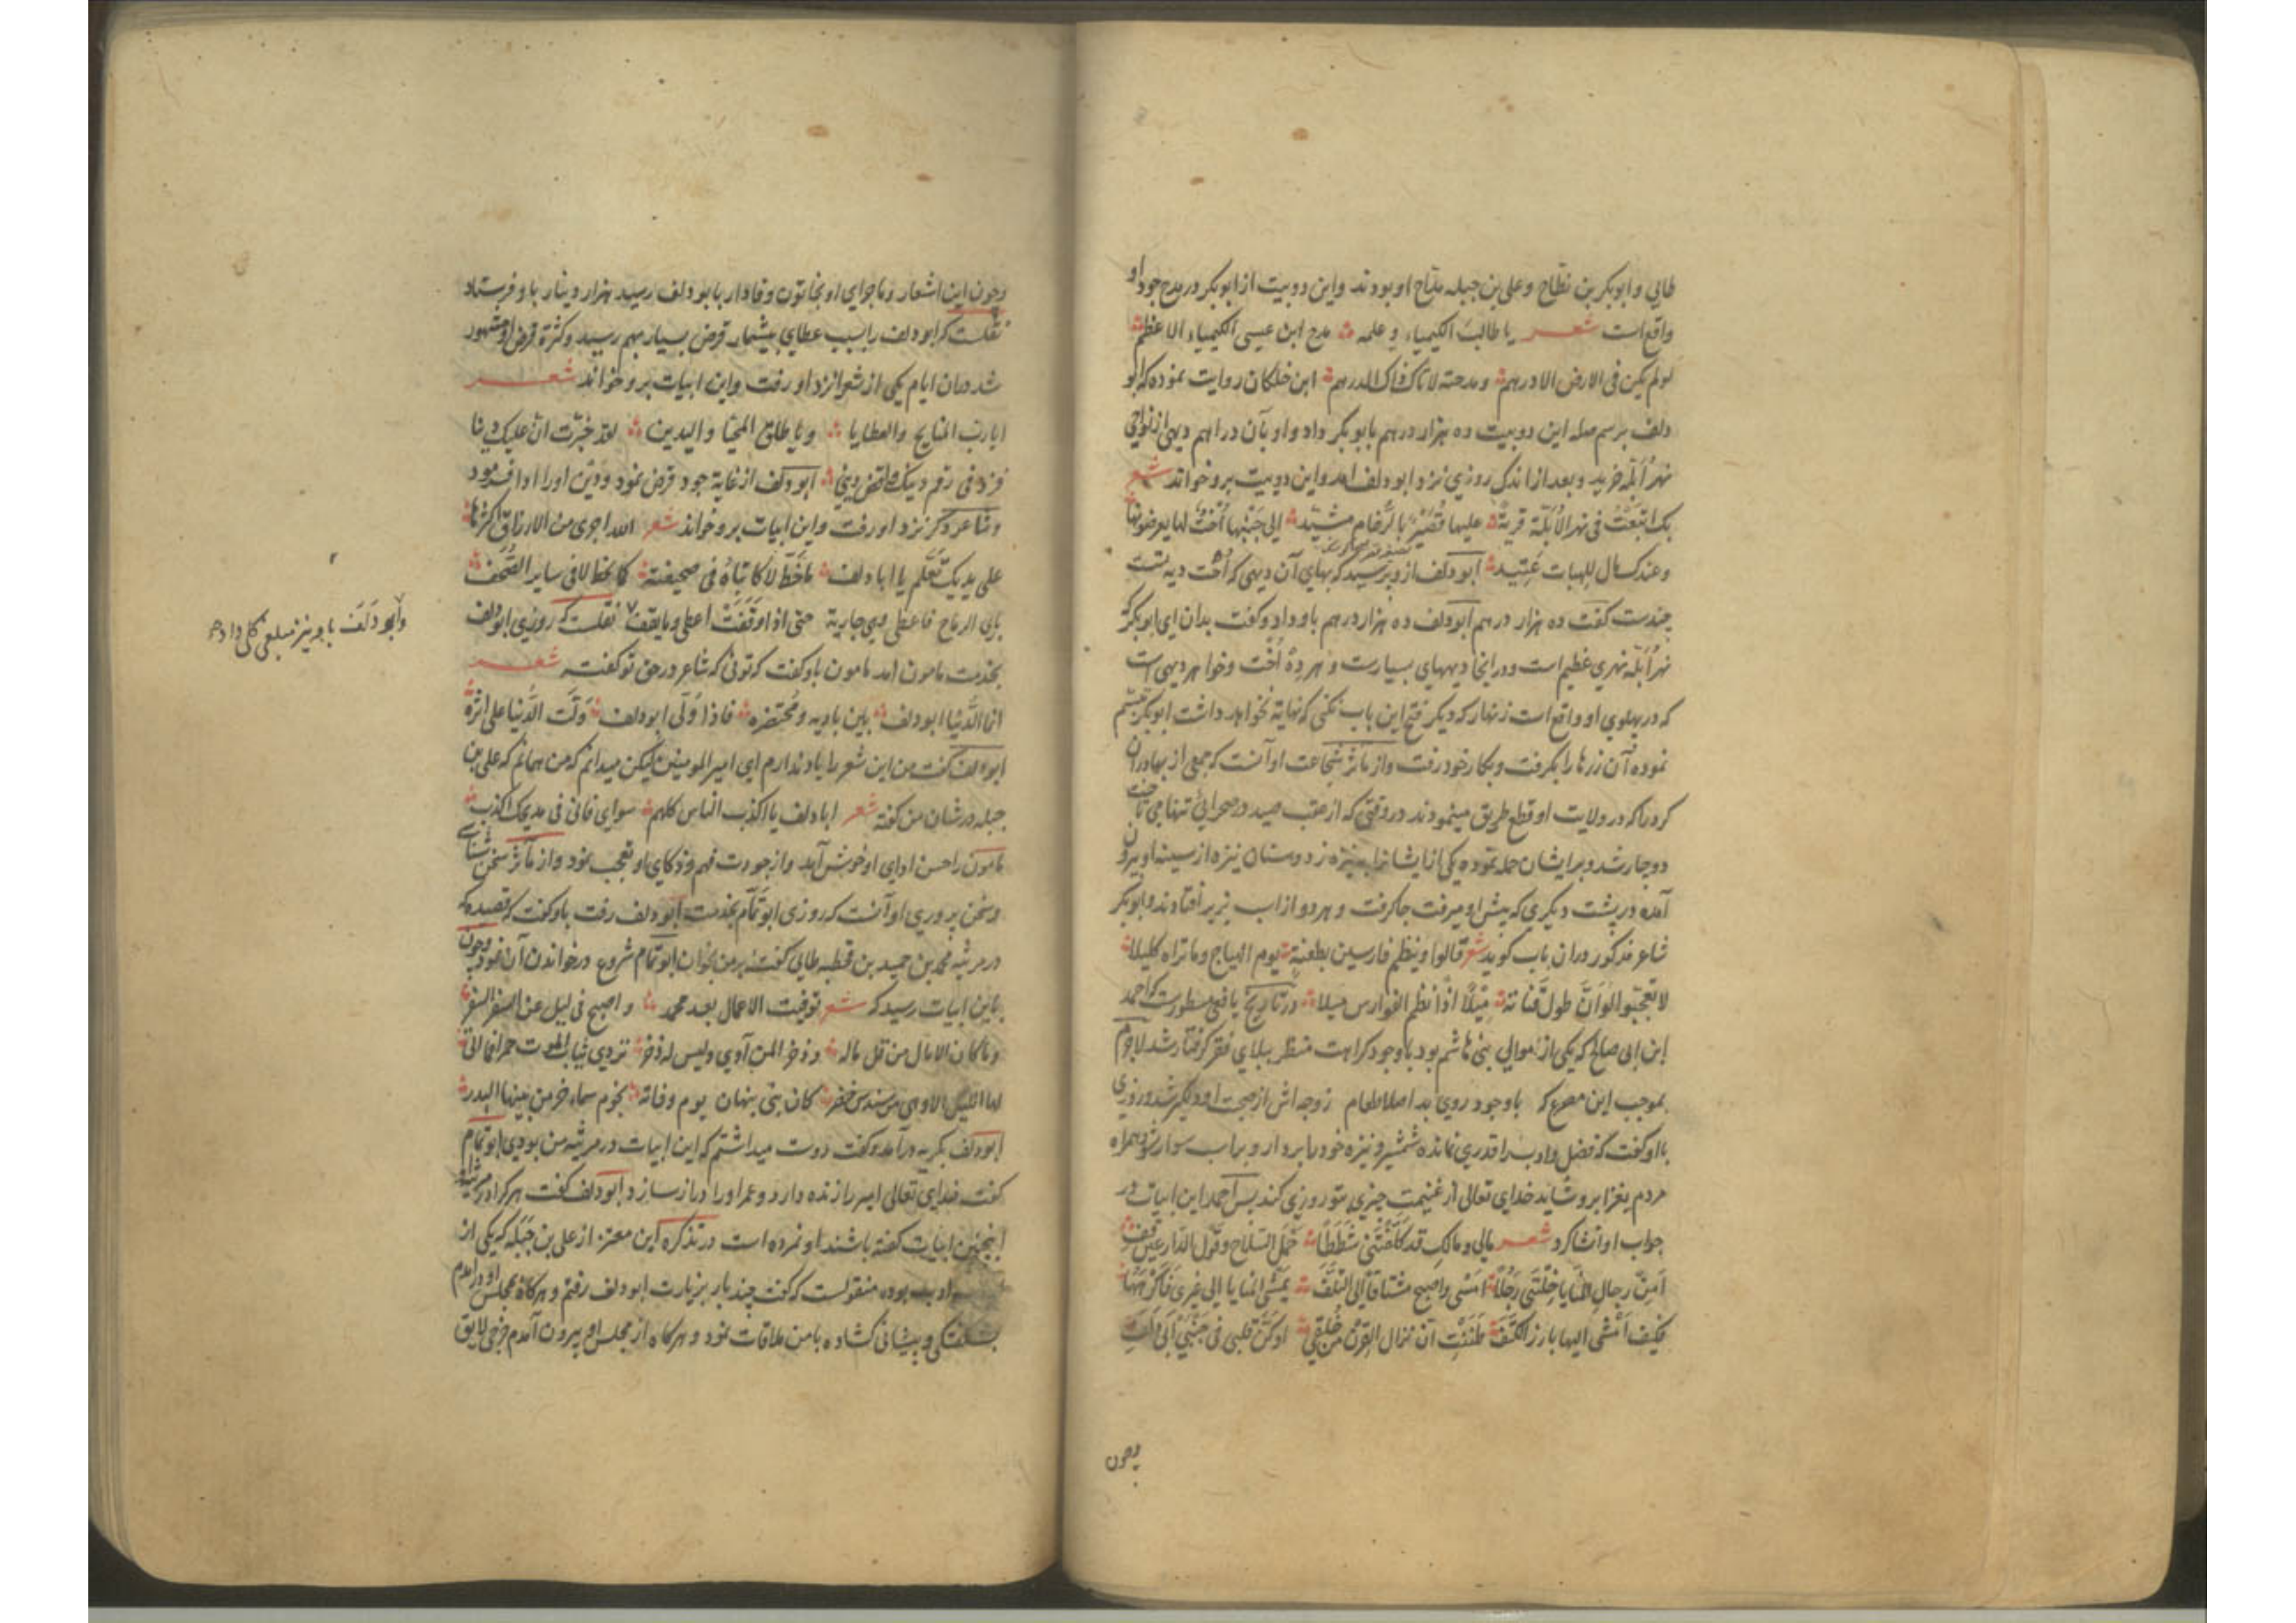 طایی و ابوبکر بن نطاح و علی بن جبله مداح او بودند و این دو بیت از ابوبکر در مدح جود او
واقع است شعر یا طالبَ الکیمیاء و علمه مدح ابن عیسی الکیمیاء الاعظم
لو لم یکن فی الارض الا درهم و مدحته لاتاک ذاک الدرهم ابن خلکان روایت نموده که ابو
دلف برسم صله این دو بیت ده هزار درهم بابوبکر داد و او بآن دراهم دیهی از نواحی
نهر اُبلّه خرید و بعد از اندک روزی نزد ابودلف امد و این دو بیت برو خواند شعر
بک ابتعتُ فی نهر الاُبُلّة قریةً علیها قُصَیْرٌ بالرُّخام مشیّد الی جَنْبها اُختٌ لها یعرضونها
و عندک مال للهبات عَتِید ابودلف ازو پرسید که بهای آن دیهی که اُخت دیه تست
چندست گفت ده هزار درهم ابودلف ده هزار درهم باو داد و گفت بدان ای ابوبکر که
نهر اُبلّه نهری عظیم است و در اینجا دیههای بسیارست و هر دِهْ اُخت و خواهر دیهی است
که در پهلوی او واقع است زنهار که دیگر فتح این باب نکنی که نهایة نخواهد داشت ابوبکر تبسّم
نموده آن زرها را بگرفت و بکار خود رفت و از مآثر شجاعت او آنست که جمعی از بهادران
کرد را که در ولایت او قطع طریق مینمودند در وقتی که از عقب صید در صحرائی تنها می تاخت
دوچار شد و بر ایشان حمله نموده یکی از ایشانرا بنیزه زد و سنان نیزه از سینه او بیرون
آمده در پشت دیگری که پیش او میرفت جا گرفت و هر دو از اسب بزیر افتادند و ابوبکر
شاعر مذکور دران باب گوید شعر قالوا و ینظم فارسین بطعنةٍ یوم الهیاج و ما تراه کلیلا
لا تعجبوا لو اَنَّ طول قناته مِیْلاً اِذًا نظم الفوارس میلا در تاریخ یافعی مسطورست که احمد
ابن ابی صالح که یکی از موالی بنی هاشم بود با وجود کراهت منظر ببلای فقر گرفتار شد لاجرم
بموجب این مصرع که باوجود روی بد اصلا طعام زوجه اش از صحبت او دلگیر شد و روزی
با او گفت که فضل و ادب را قدری نمانده شمشیر و نیزه خود را بردار و بر اسب سوار شو و همراه
مردم بغزا برو شاید خدای تعالی از غنیمت چیزی بتو روزی کند پس احمد این ابیات در
جواب او انشا کرد شعر مالی و مالکِ قد کلَّفْتَنی شَطَطًا حَمْل السّلاح و قول الدّارعین قِفِ
اَمِنْ رجال المنایا خِلْتَنی رَجُلاً امشی و اصبح مشتاقاً الی التَّلَف یمشی المنایا الی غیری فَاَکرهها
فکیف اَمْشی الیها بارز الکتف ظننتِ ان نزال القِرن من خُلقی او اَنّ قلبی فی جَنْبَی اَبی دُلَفِ
وچون
وچون این اشعار و ماجرای او بخاتون وفادار بابودلف رسید هزار دینار باو فرستاد
نقلست که ابودلف را بسبب عطای بیشمار قرض بسیار بهم رسید و کثرة قرض او مشهور
شد دران ایام یکی از شعرا نزد او رفت و این ابیات برو خواند شعر
ایا ربّ المنایح والعطایا و یا طلق المحیّا والیدین لقد خُبّرت ان علیک دینا
فزد فی رقم دینک واقض دینی ابودلف از غایة جود قرض نمود و دَین او را ادا فرمود
و شاعر دیگر نزد او رفت و این ابیات برو خواند شعر الله اجری من الارزاق اکثرها
علی یدیک تعلم یا ابا دلف ما خطّ لا کاتباه فی صحیفته کما یخط لا فی سایر الصُّحُف
باری الریاح فاعطی وهی جاریة حتی اذا وَقَفَتْ اعطی و ما یقف نقلست که روزی ابودلف
بخدمت مامون امد مامون باو گفت که توئی که شاعر در حق تو گفته شعر
انما الدُّنیا ابودلف بین بادیه و مُحتضره فاذا وَلّی ابودلف وَلَّت الدُّنیا علی اثره
ابودلف گفت من این شعر را یاد ندارم ای امیر المومنین لیکن میدانم که من همانم که علی بن
جبله در شان من گفته شعر ابا دلف یا اکذب الناس کلهم سوای فانی فی مدیحک اکذب
مامون را حسن ادای او خوش آمد و از جودت فهم و ذکای او تعجب نمود و از مآثر سخن شناسی
و سخن پروری او آنست که روزی ابوتمّام بخدمت ابودلف رفت باو گفت که قصیده که
در مرثیه محمد بن حمید بن قحطبه طایی گفته بر من بخوان ابوتمام شروع در خواندن آن نمود و چون
باین ابیات رسید که شعر توفیت الامال بعد محمد و اصبح فی لیل عن السفر السفر
و ما کان الا مال من قل ماله و ذخر المن آوی ولیس له ذخر تردی ثیاب الموت حمرا فما اتی
لها اللیل الا و هی من سندس خضر کان بنی نبهان یوم وفاته نجوم سماء خر من بینها البدر
ابودلف بگریه درآمد و گفت دوست میداشتم که این ابیات در مرثیه من بودی ابوتمام
گفت خدای تعالی امیر را زنده دارد و عمر او را دراز سازد ابودلف گفت هر کرا در مرثیه
اینچنین ابیات گفته باشند او نمرده است در تذکره ابن معتز از علی بن جبَله که یکی از
بوده منقولست که گفت چند بار بزیارت ابودلف رفتم و هرگاه بمجلس او درامدم
بشگفتگی و پیشانی گشاده با من ملاقات نمود و هرگاه از مجلس او بیرون آمدم خرجی لایق
وابو دَلَف باو نیز مبلغی کلی داد